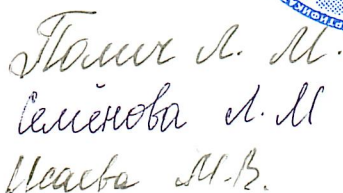 Полич Л. М.
Семёнова Л. М
Исаева М. В.